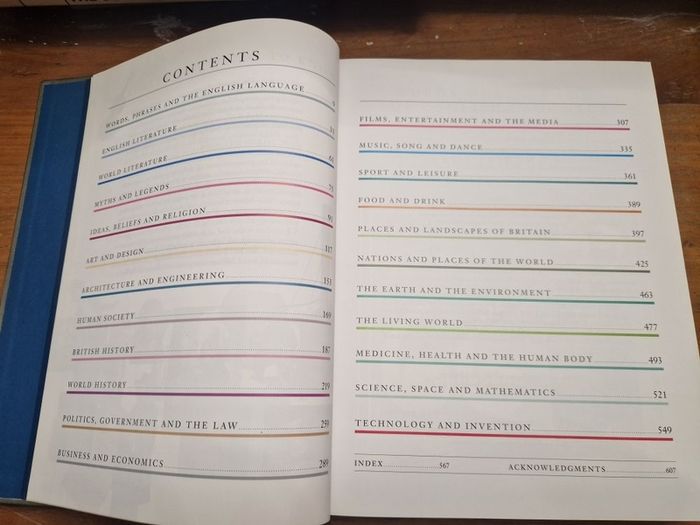 CONTENTS
WORDS, PHRASES AND THE ENGLISH LANGUAGE 9
ENGLISH LITERATURE 31
WORLD LITERATURE 61
MYTHS AND LEGENDS 75
IDEAS, BELIEFS AND RELIGION 91
ART AND DESIGN 117
ARCHITECTURE AND ENGINEERING 153
HUMAN SOCIETY 169
BRITISH HISTORY 187
WORLD HISTORY 219
POLITICS, GOVERNMENT AND THE LAW 259
BUSINESS AND ECONOMICS 289
FILMS, ENTERTAINMENT AND THE MEDIA 307
MUSIC, SONG AND DANCE 335
SPORT AND LEISURE 361
FOOD AND DRINK 389
PLACES AND LANDSCAPES OF BRITAIN 397
NATIONS AND PLACES OF THE WORLD 425
THE EARTH AND THE ENVIRONMENT 463
THE LIVING WORLD 477
MEDICINE, HEALTH AND THE HUMAN BODY 493
SCIENCE, SPACE AND MATHEMATICS 521
TECHNOLOGY AND INVENTION 549
INDEX 567 ACKNOWLEDGMENTS 607